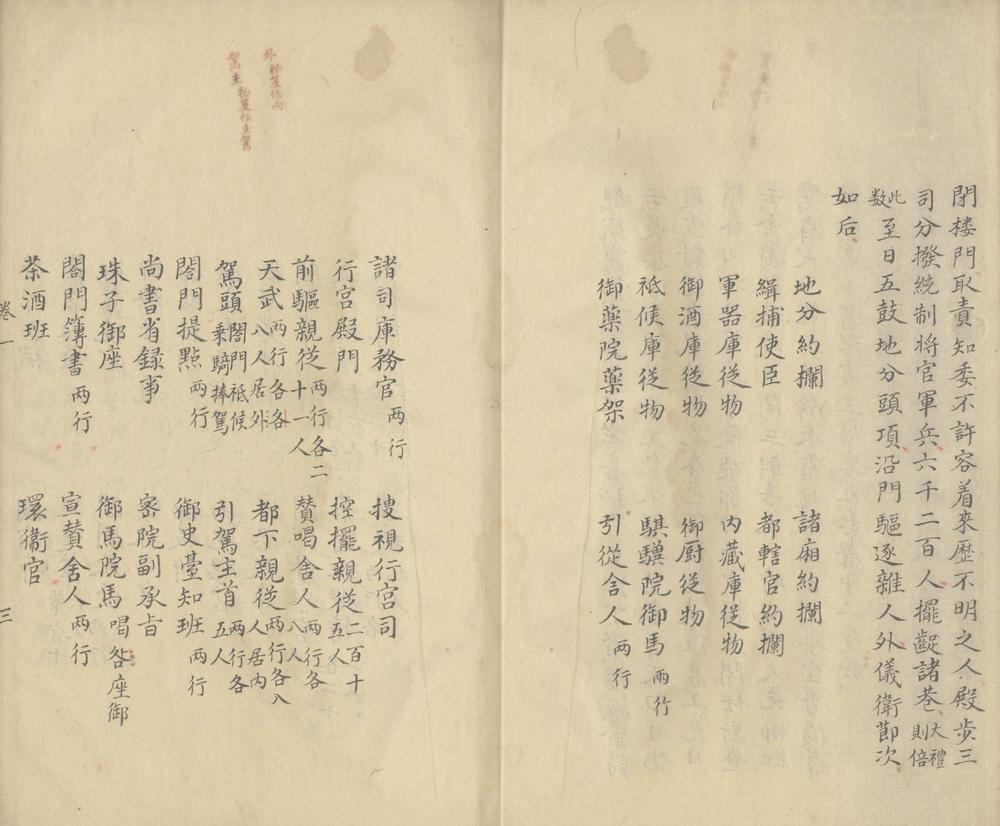 閉楼門取責知委不許容着來歷不明之人殿步三
司分撥統制将官軍兵六千二百人擺齪諸巷大禮則倍
此数至日五鼓地分頭項沿門驅逐雜人外儀衛節次
如后
地分約攔　諸廂約攔
緝捕使臣　都轄官約攔
軍器庫從物　内藏庫從物
御酒庫從物　御厨從物
祗候庫從物　騏驥院御馬兩行
御藥院藥架　引從舍人兩行
諸司庫務官兩行　搜視行宫司
行宫殿門　控擺親從二百十五人
前驅親從兩行各二十一人　贊唱舍人兩行各八人
天武兩行各各八人居外　都下親從兩行各八人居内
駕頭閤門祗候乗騎捧駕　引駕主首兩行各五人
閤門提點兩行　御史臺知班兩行
尚書省録事　宻院副承旨
珠子御座　御馬院馬唱喏座御
閤門簿書兩行　宣贊舍人兩行
茶酒班　環衛官
外 秘笈作内
駕主 秘笈作主駕
卷一
三